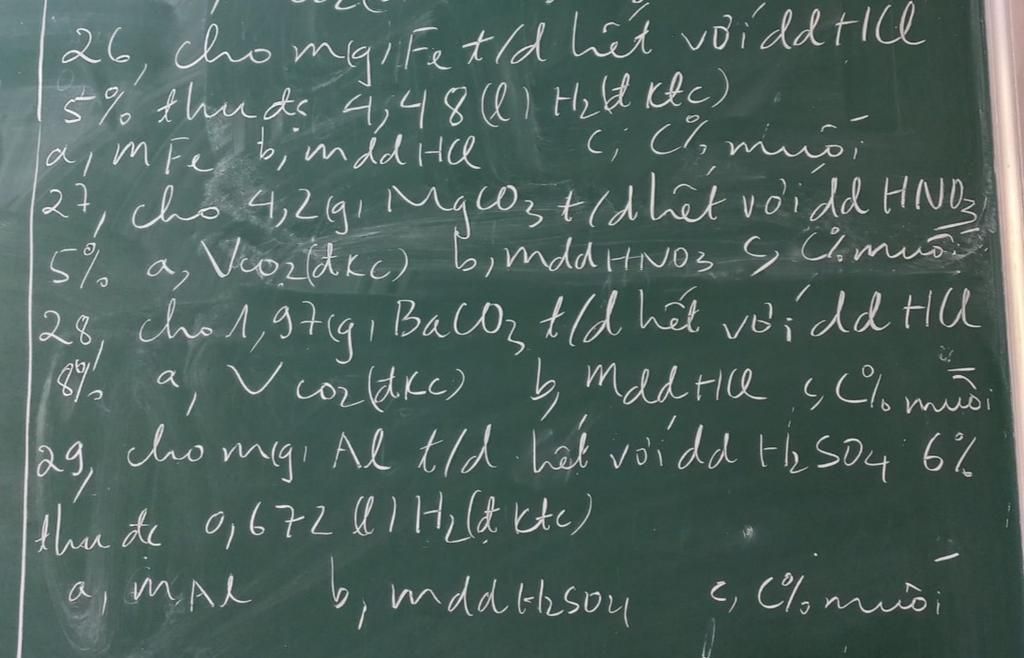 26, cho m(g) Fe t/d hết với dd HCl
5% thu đc 4,48(l) H2(đktc)
a, mFe b, mddHCl c, C% muối
27, cho 4,2(g) MgCO3 t/d hết với dd HNO3
5% a, VCO2(đkc) b, mddHNO3 c, C% muối
28, cho 1,97(g) BaCO3 t/d hết với dd HCl
8% a, VCO2(đkc) b, mddHCl c, C% muối
29, cho m(g) Al t/d hết với dd H2SO4 6%
thu đc 0,672(l) H2(đktc)
a, mAl b, mddH2SO4 c, C% muối